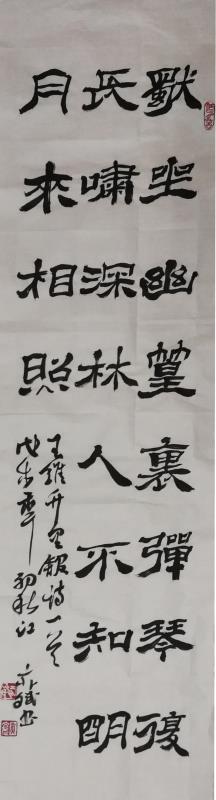 獨坐幽篁裏彈琴復
長嘯深林人不知明
月來相照
王維竹里館詩一首
初秋